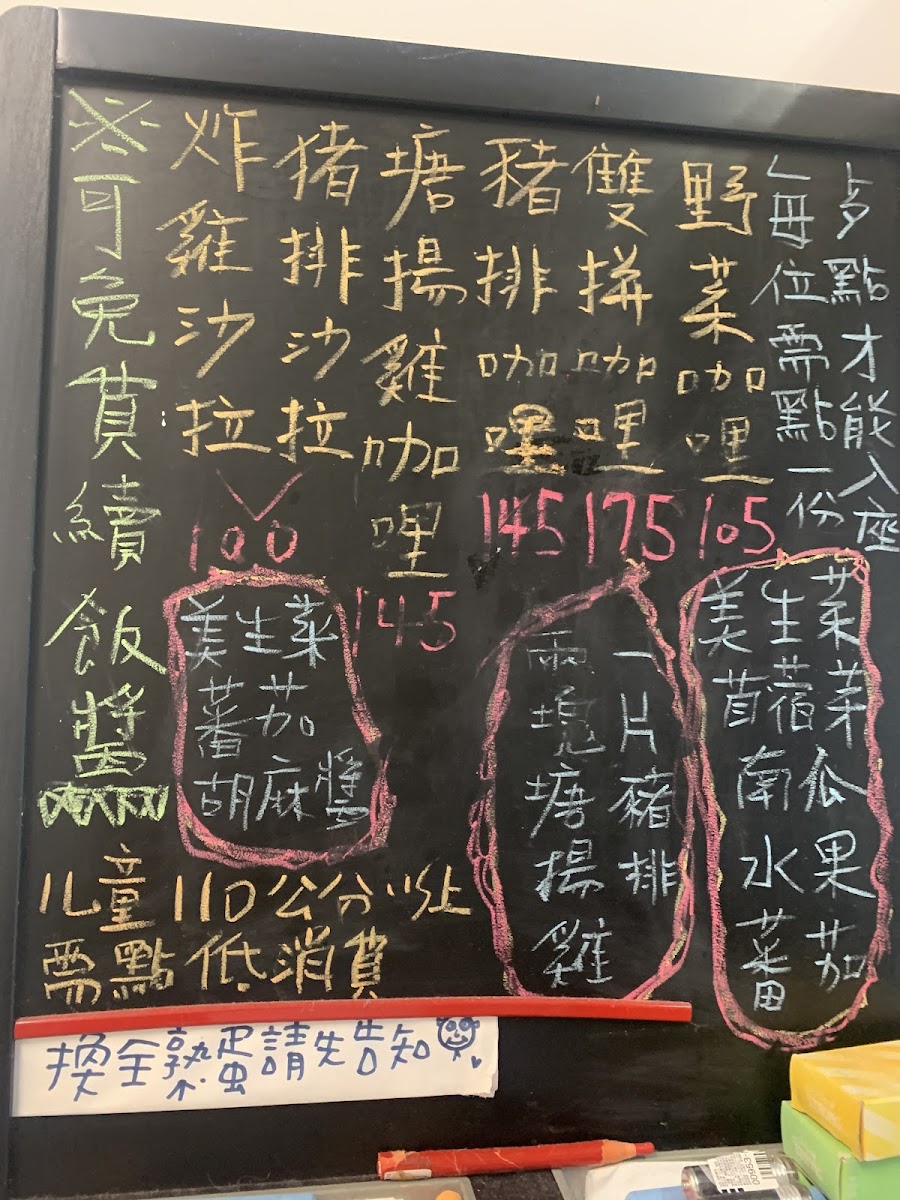 ※可免費續飯醬
炸雞沙拉
猪排沙拉
100
塘揚雞咖哩
145
豬排咖哩
145
雙拼咖哩
175
野菜咖哩
105
每位需點一份
歺點才能入座
美生菜
蕃茄
胡麻醬
兩塊塘揚雞
一片豬排
美生菜
苜蓿芽
南瓜
水果
蕃茄
儿童110公分以上
需點低消費
換全熟蛋請先告知